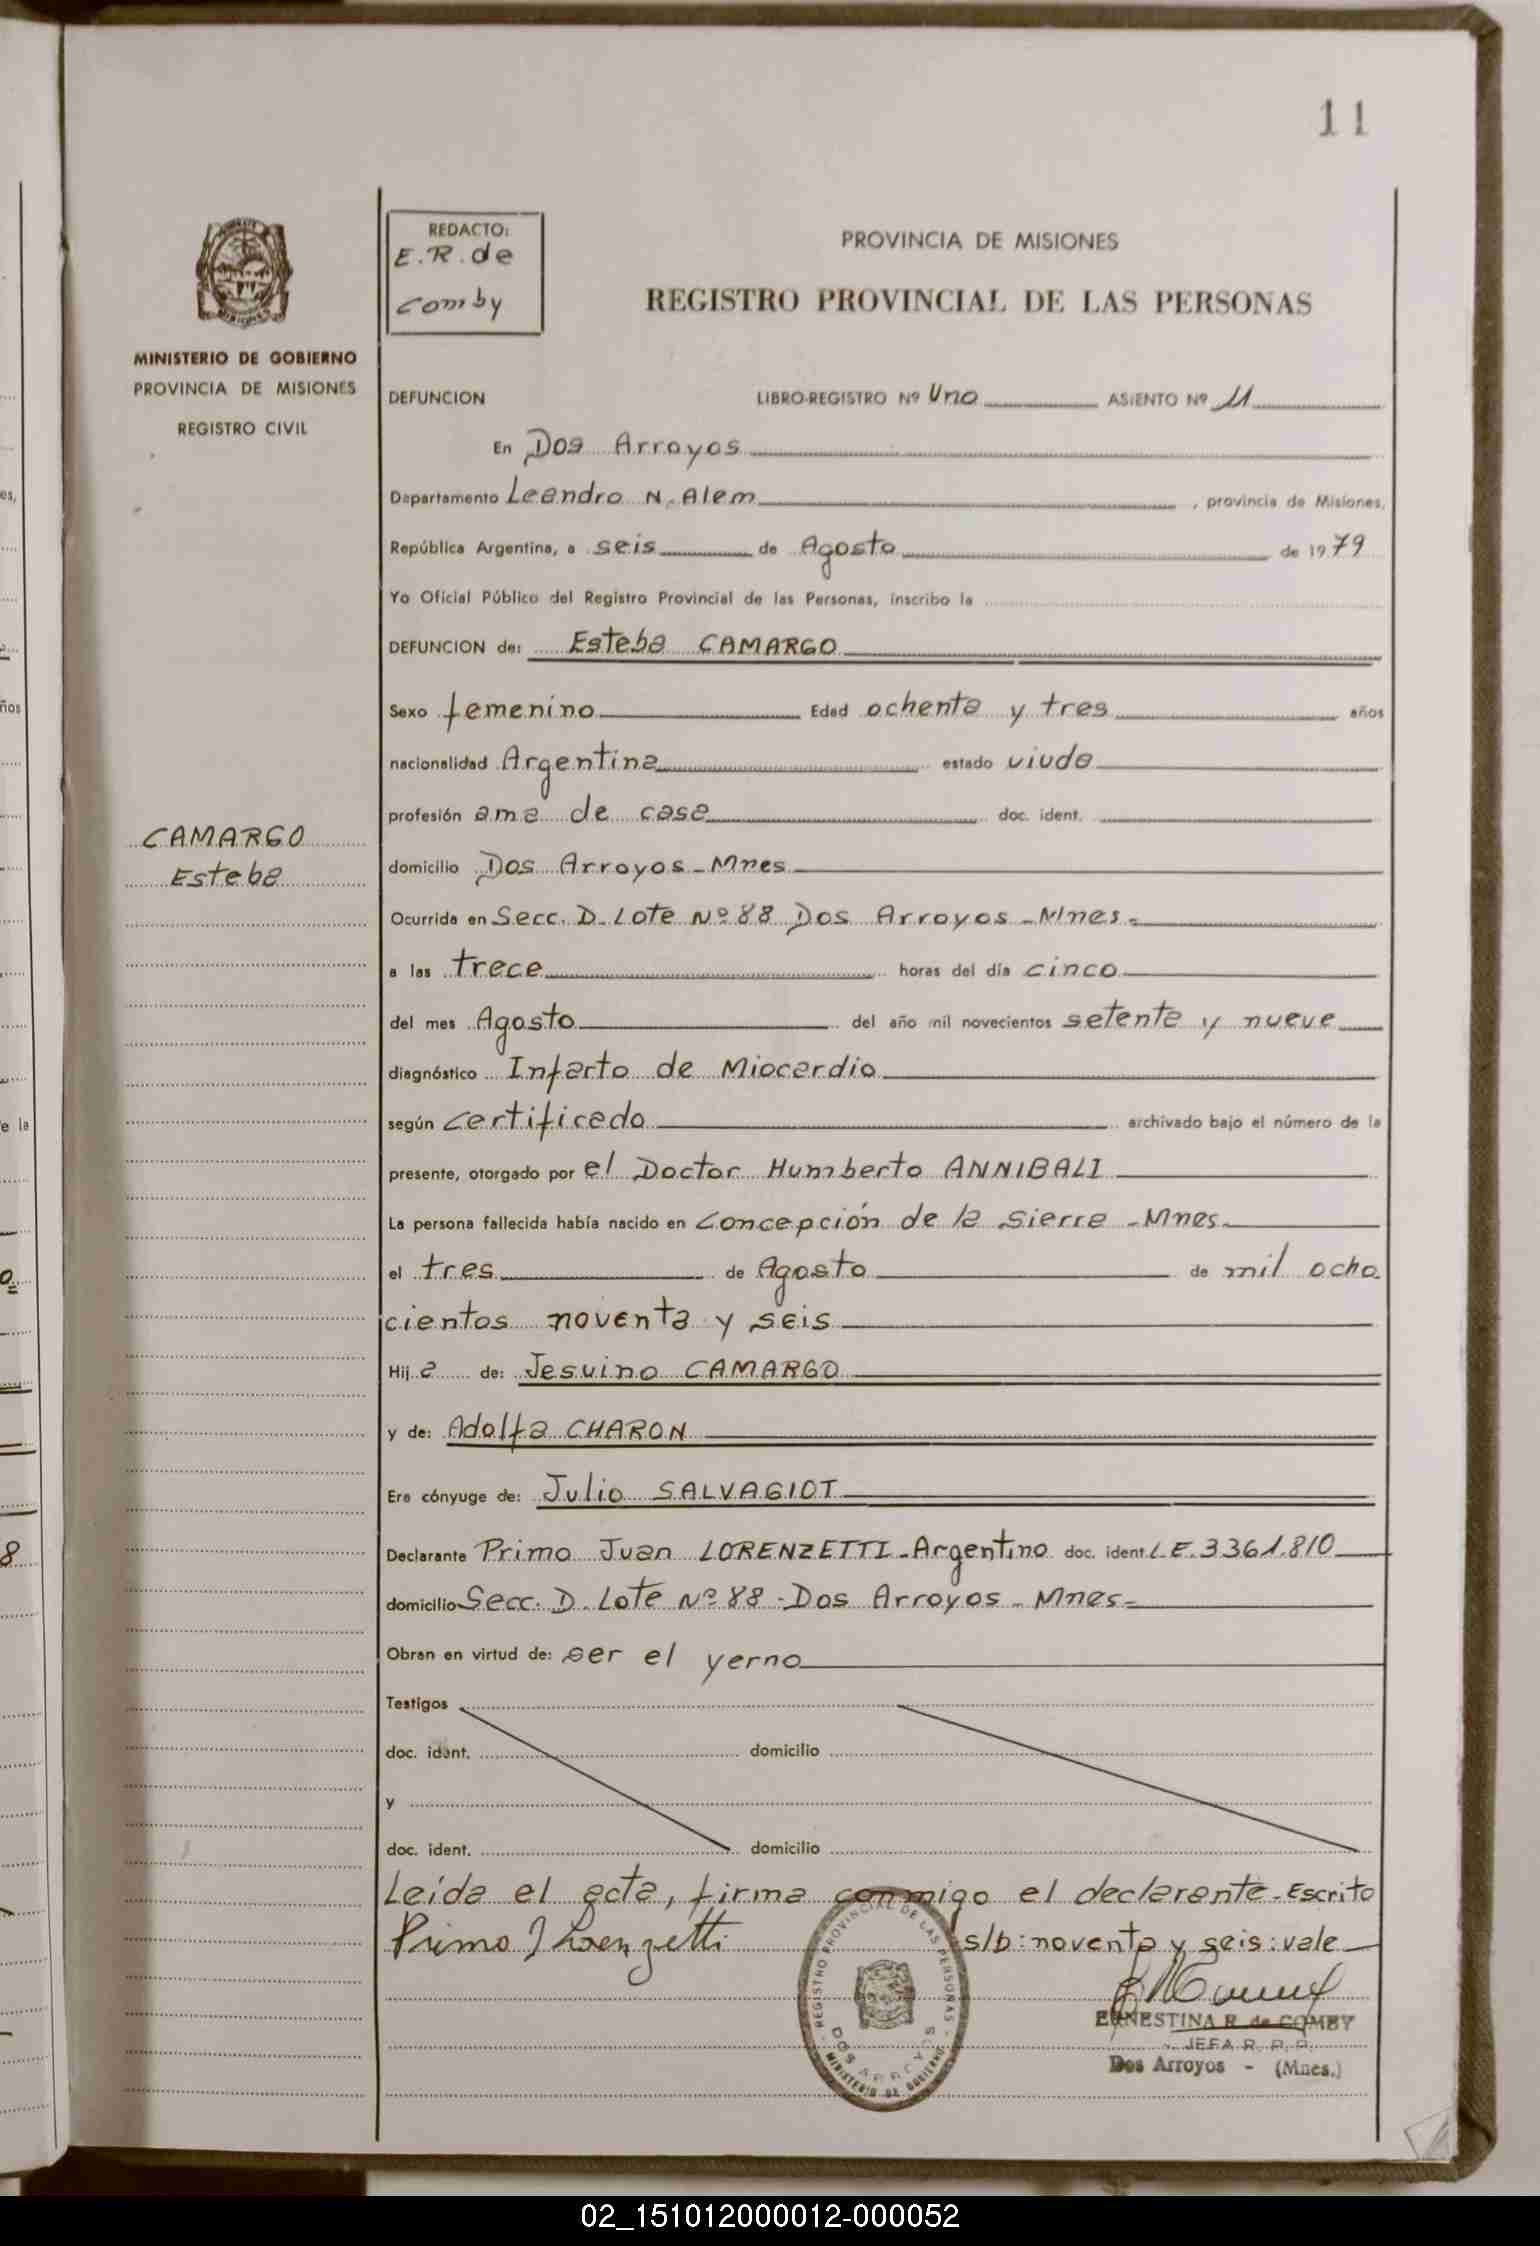 11
REDACTO:
E.R. de
Comby
PROVINCIA DE MISIONES
REGISTRO PROVINCIAL DE LAS PERSONAS
MINISTERIO DE GOBIERNO
PROVINCIA DE MISIONES
REGISTRO CIVIL
DEFUNCION LIBRO-REGISTRO Nº Uno ASIENTO Nº 11
En Dos Arroyos
Departamento Leandro N. Alem, provincia de Misiones,
República Argentina, a seis de Agosto de 1979
Yo Oficial Público del Registro Provincial de las Personas, inscribo la
DEFUNCION de: Esteba CAMARGO
Sexo femenino Edad ochenta y tres años
nacionalidad Argentina estado viuda
profesión ama de casa doc. ident.
CAMARGO
Esteba
domicilio Dos Arroyos - Mnes
Ocurrida en Secc. D. Lote Nº 88 Dos Arroyos - Mnes.
a las trece horas del día cinco
del mes Agosto del año mil novecientos setenta y nueve
diagnóstico Infarto de Miocardio
según certificado archivado bajo el número de la
presente, otorgado por el Doctor Humberto ANNIBALI
La persona fallecida había nacido en Concepción de la Sierra - Mnes.
el tres de Agosto de mil ocho
cientos noventa y seis
Hija de: Jesuino CAMARGO
y de: Adolfa CHARON
Era cónyuge de: Julio SALVAGIOT
Declarante Primo Juan LORENZETTI - Argentino doc. ident L.E. 3361.810
domicilio Secc. D. Lote Nº 88 - Dos Arroyos - Mnes
Obran en virtud de: ser el yerno
Testigos
doc. ident. domicilio
y
doc. ident. domicilio
Leída el acta, firma conmigo el declarante. Escrito
Primo J Lorenzetti s/b: noventa y seis: vale
REGISTRO PROVINCIAL DE LAS PERSONAS
DOS ARROYOS
MINISTERIO DE GOBIERNO
ERNESTINA R. de COMBY
JEFA R. P. P.
Dos Arroyos - (Mnes.)
02_151012000012-000052